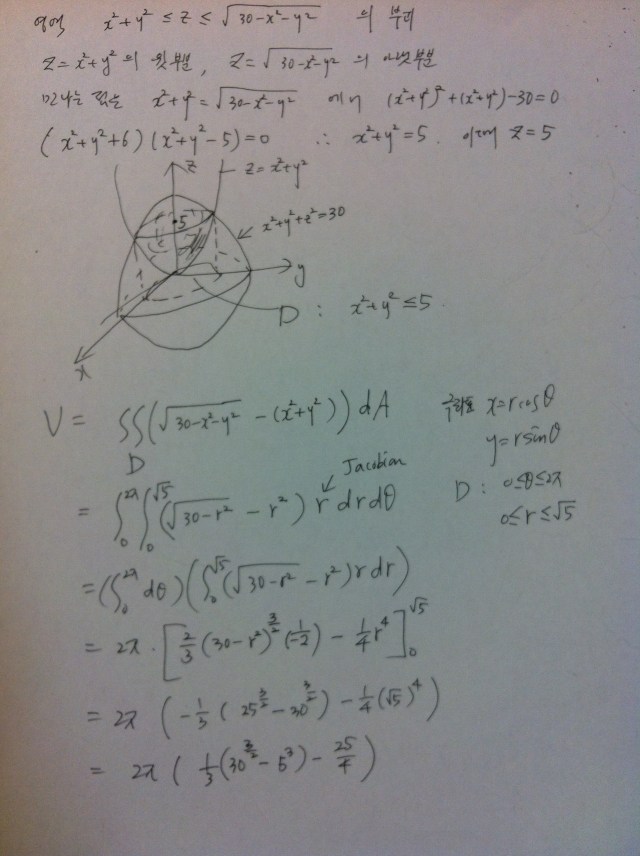 영역 x²+y² ≤ z ≤ √(30-x²-y²) 의 부피
z=x²+y² 의 윗부분, z=√(30-x²-y²) 의 아랫부분
만나는 점은 x²+y²=√(30-x²-y²) 에서 (x²+y²)²+(x²+y²)-30=0
(x²+y²+6)(x²+y²-5)=0 ∴ x²+y²=5. 이때 z=5
z
z=x²+y²
5
x²+y²+z²=30
y
D : x²+y²≤5.
x
V = ∬_D (√(30-x²-y²) - (x²+y²)) dA
극좌표 x=rcosθ
y=rsinθ
D : 0≤θ≤2π
0≤r≤√5
Jacobian
= ∫₀^2π ∫₀^√5 (√(30-r²) - r²) r dr dθ
= (∫₀^2π dθ)(∫₀^√5 (√(30-r²) - r²) r dr)
= 2π · [2/3 (30-r²)^3/2 (1/-2) - 1/4 r⁴]₀^√5
= 2π (-1/3 (25^3/2 - 30^3/2) - 1/4 (√5)⁴)
= 2π (1/3 (30^3/2 - 5³) - 25/4)